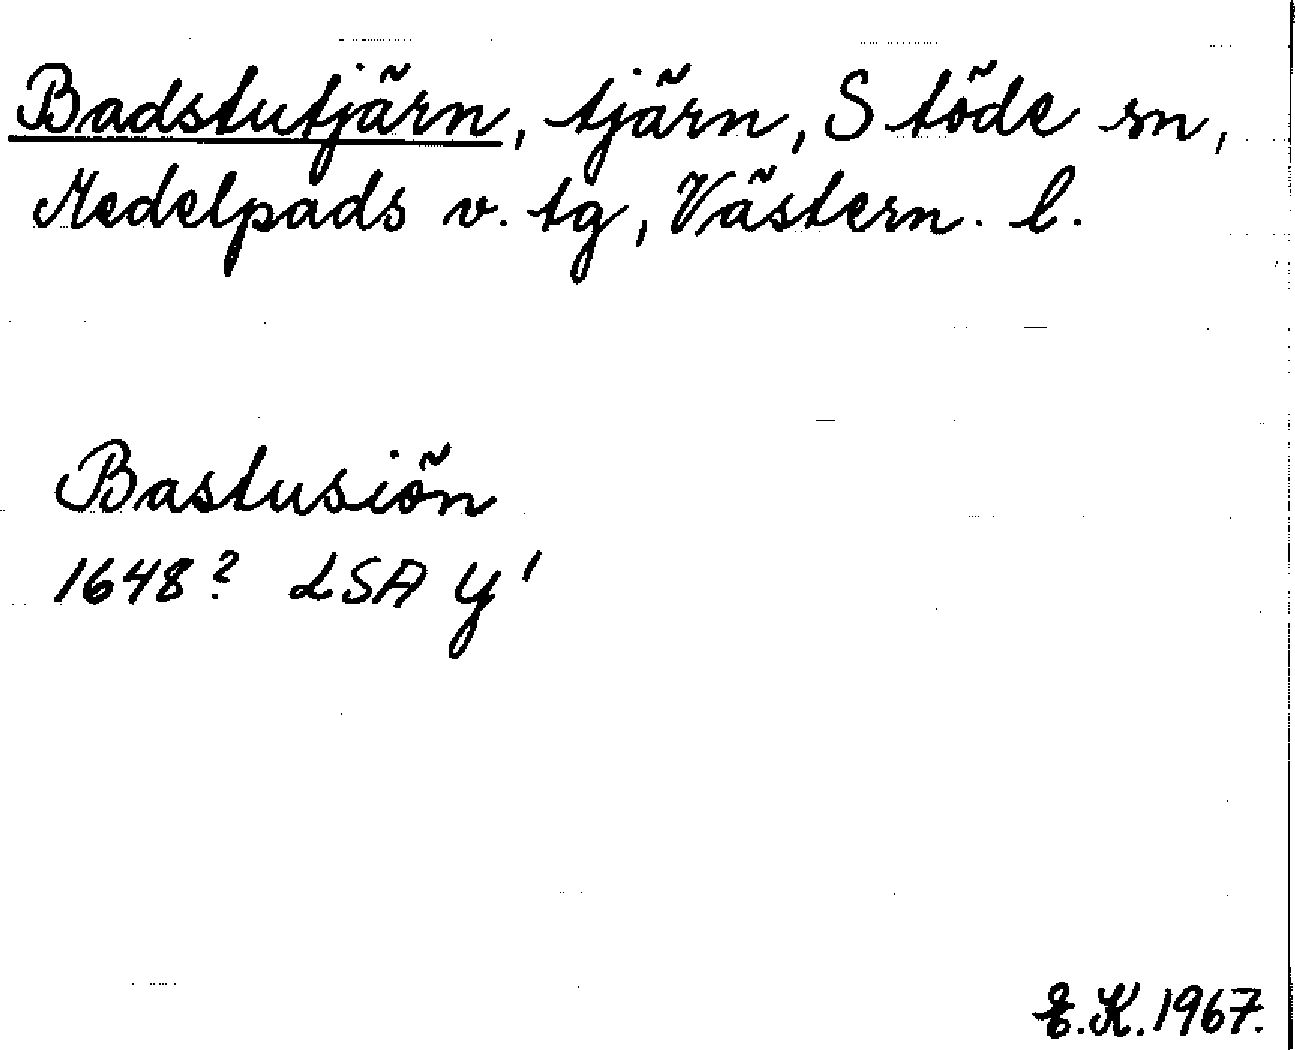 Badstutjärn, tjärn, Stöde sn,
Medelpads v. tg, Västern. l.
Bastusiön
1648? LSA Y1
E.K. 1967.